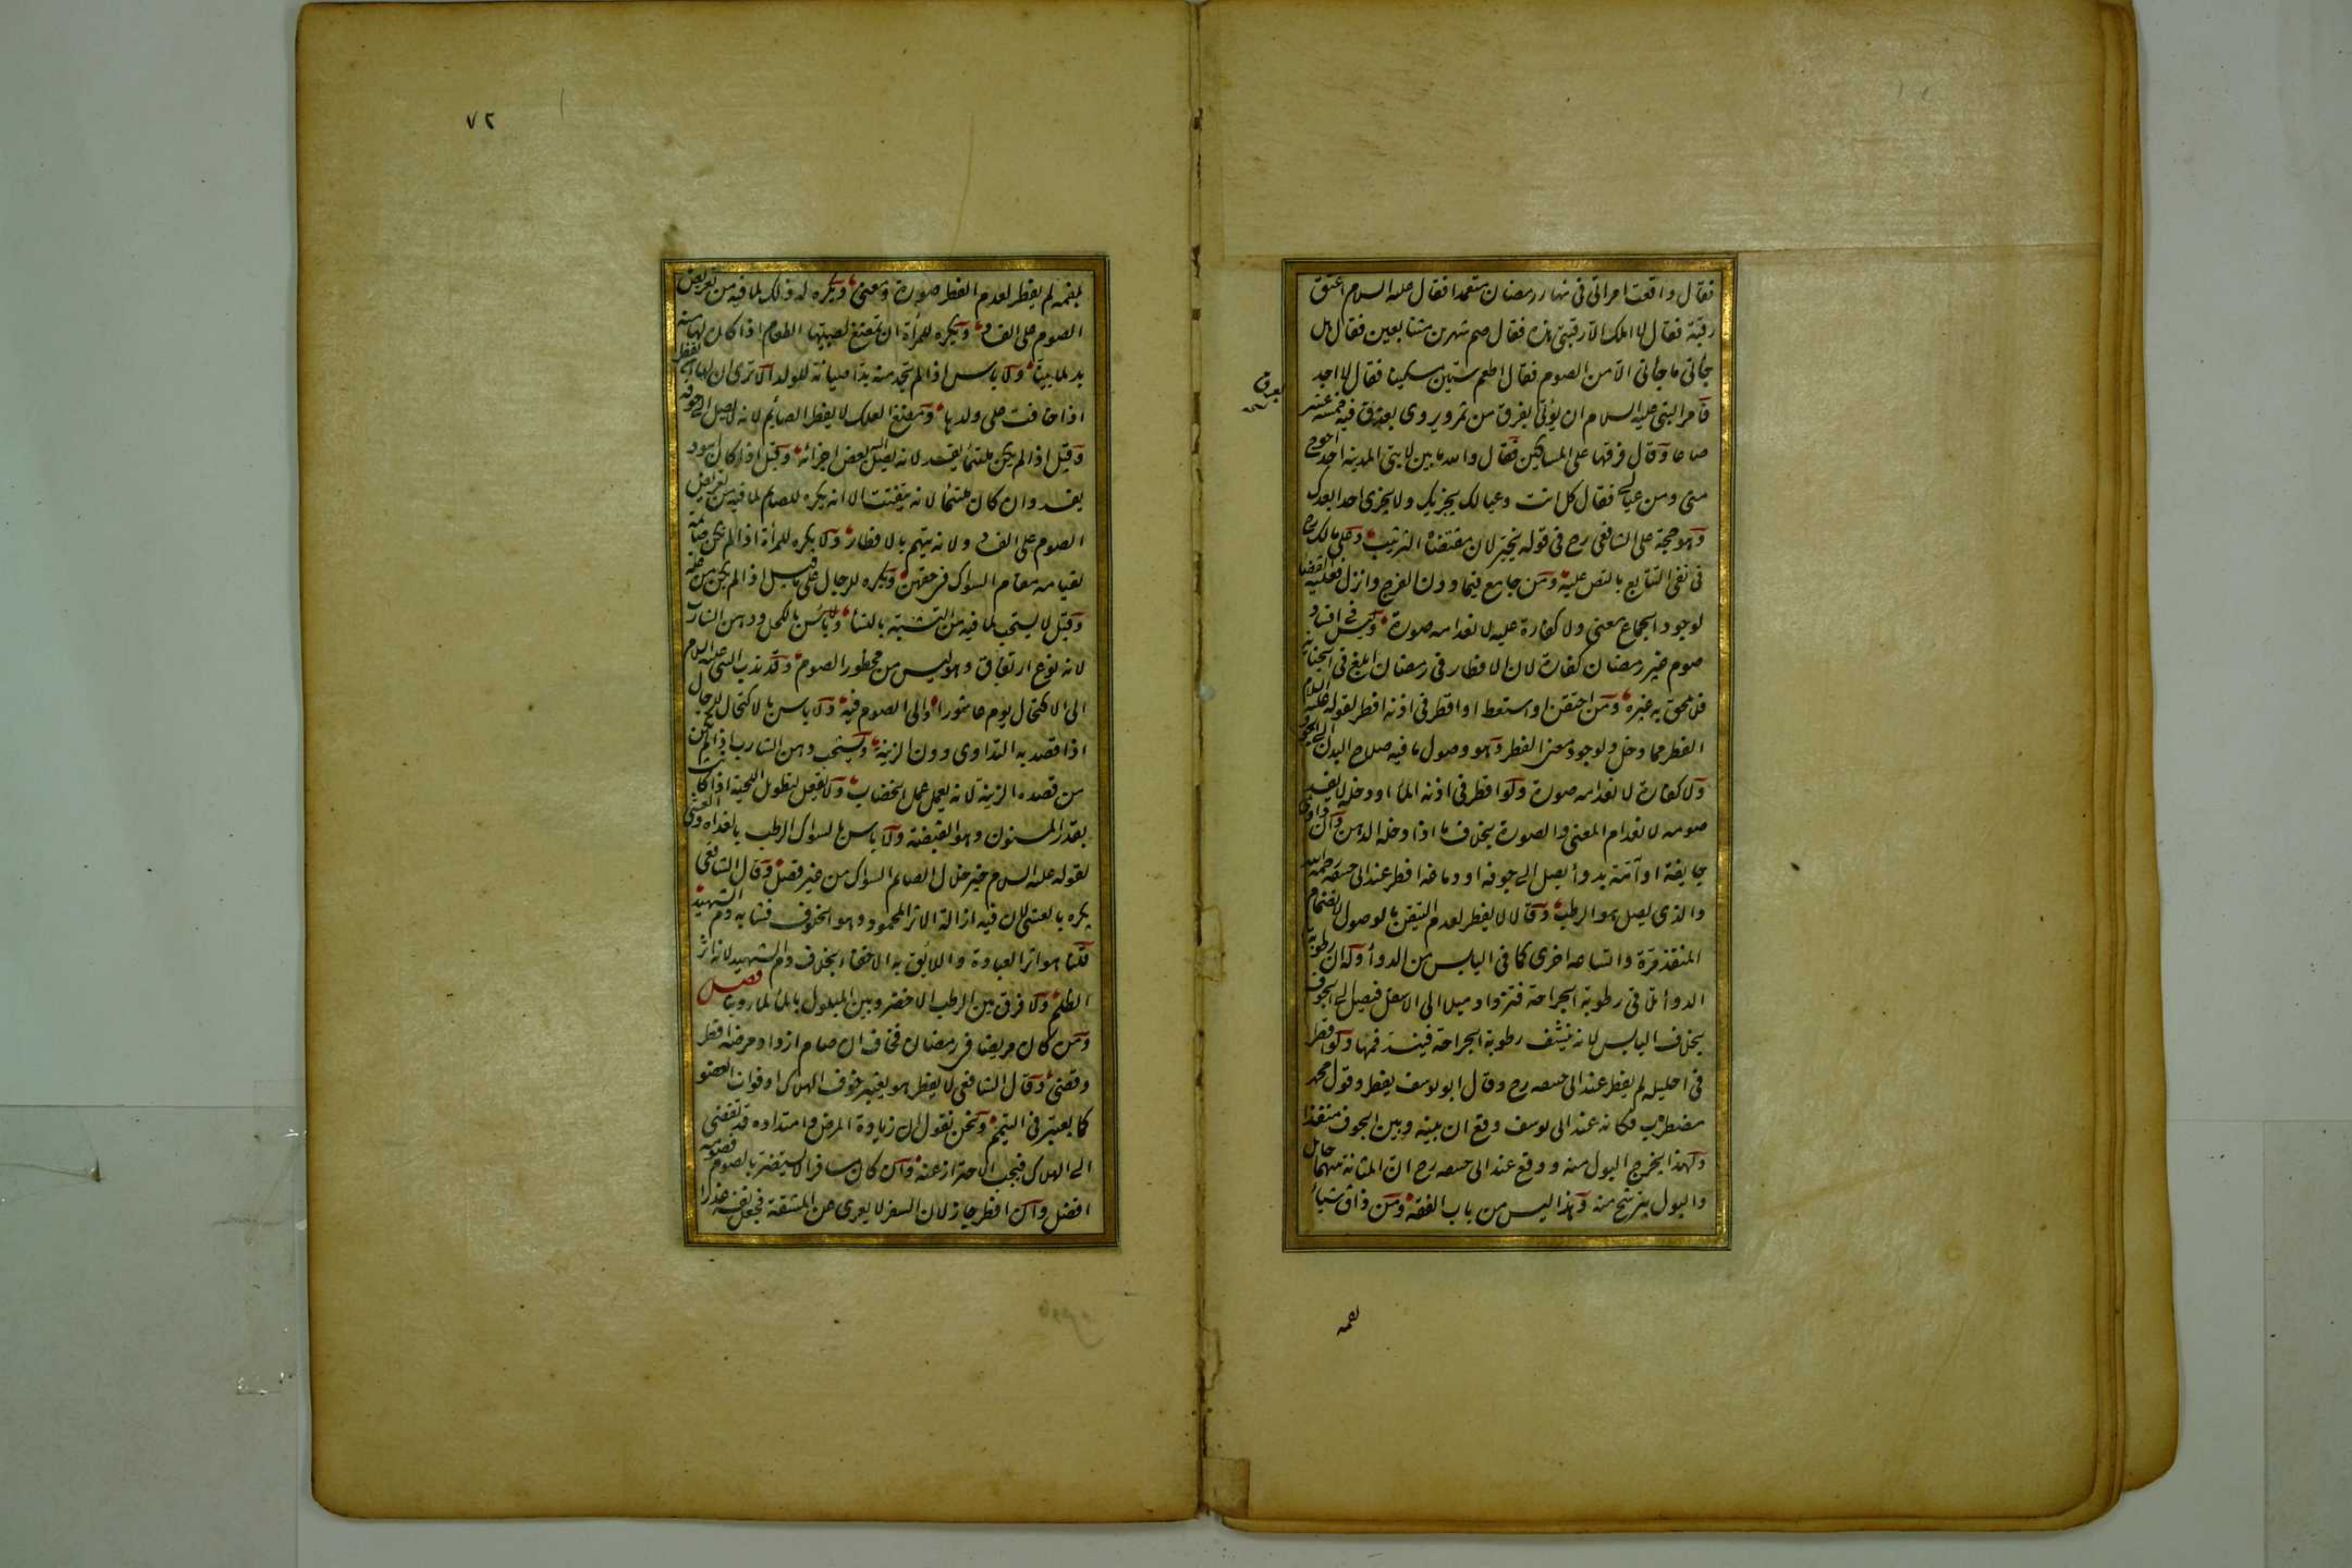 فقال واقعت امراتى فى نهار رمضان متعمدا فقال عليه السلام اعتق
رقبة فقال لا املك الا رقبتى هذه فقال صم شهرين متتابعين فقال هل
جاءنى ما جاءنى الا من الصوم فقال اطعم ستين مسكينا فقال لا اجد
فامر النبى عليه السلام ان يؤتى بفرق من تمر ويروى بعرق فيه خمسة عشر
صاعا وقال فرقها على المساكين فقال والله ما بين لابتى المدينة احد احوج
منى ومن عيالى فقال كل انت وعيالك يجزيك ولا يجزى احدا بعدك
وهو حجة على الشافعى رح فى قوله يخير لان مقتضاه الترتيب وعلى مالك رح
فى نفى التتابع بالنص عليه ومن جامع فيما دون الفرج وانزل فعليه القضاء
لوجود الجماع معنى ولا كفارة عليه لانعدامه صورة وليس فى افساد
صوم غير رمضان كفارة لان الافطار فى رمضان ابلغ فى الجناية
فلا يلحق به غيره ومن احتقن او استعط او اقطر فى اذنه افطر لقوله عليه السلام
الفطر مما دخل ولوجود معنى الفطر وهو وصول ما فيه صلاح البدن الى الجوف
ولا كفارة لانعدامه صورة ولو اقطر فى اذنه الماء او دخله لا يفسد
صومه لانعدام المعنى والصورة بخلاف ما اذا دخله الدهن وان داوى
جايفة او آمة بدواء يصل الى جوفه او دماغه افطر عند ابى حنيفة رحمه الله
والذى يصل هو الرطب وقالا لا يفطر لعدم التيقن بالوصول لانضمام
المنفذ مرة واتساعه اخرى كما فى اليابس من الدواء وله ان رطوبة
الدواء تلاقى رطوبة الجراحة فتزداد ميلا الى الاسفل فيصل الى الجوف
بخلاف اليابس لانه ينشف رطوبة الجراحة فينسد فمها ولو اقطر
فى احليله لم يفطر عند ابى حنيفة رح وقال ابو يوسف يفطر وقول محمد
مضطرب فكانه عند ابى يوسف وقع ان بينه وبين الجوف منفذا
ولهذا يخرج البول منه ووقع عند ابى حنيفة رح ان المثانة بينهما حايل
والبول يترشح منه وهذا ليس من باب الفقه ومن ذاق شيئا
بعرق
بفمه
٧٢
بفمه لم يفطر لعدم الفطر صورة ومعنى ويكره له ذلك لما فيه من تعريض
الصوم على الفساد ويكره للمرأة ان تمضغ لصبيها الطعام اذا كان لها منه
بد لما بينا ولا باس اذا لم تجد منه بدا صيانة للولد الا ترى ان لها ان تفطر
اذا خافت على ولدها ومضغ العلك لا يفطر الصائم لانه لا يصل الى جوفه
وقيل اذا لم يكن ملتئما يفسد لانه يصل اليه بعض اجزائه وقيل اذا كان اسود
يفسد وان كان ملتئما لانه يتفتت الا انه يكره للصائم لما فيه من تعريض
الصوم على الفساد ولانه يتهم بالافطار ولا يكره للمرأة اذا لم تكن صائمة
لقيامه مقام السواك فى حقهن ويكره للرجال على ما قيل اذا لم يكن من علة
وقيل لا يستحب لما فيه من التشبه بالنساء ولا باس بالكحل ودهن الشارب
لانه نوع ارتفاق وهو ليس من محظور الصوم وقد ندب النبى عليه السلام
الى الاكتحال يوم عاشورا والى الصوم فيه ولا باس بالاكتحال للرجال
اذا قصد به التداوى دون الزينة ويستحب دهن الشارب اذا لم يكن
من قصده الزينة لانه يعمل عمل الخضاب ولا يفعل لتطويل اللحية اذا كانت
بقدر المسنون وهو القبضة ولا باس بالسواك الرطب بالغداة والعشى
لقوله عليه السلام خير خلال الصائم السواك من غير فصل وقال الشافعى
يكره بالعشى لان فيه ازالة الاثر المحمود وهو الخلوف فشابه دم الشهيد
قلنا هو اثر العبادة واللائق به الاخفاء بخلاف دم الشهيد لانه اثر
الظلم ولا فرق بين الرطب الاخضر وبين المبلول بالماء لما روينا فصل
ومن كان مريضا فى رمضان فخاف ان صام ازداد مرضه افطر
وقضى وقال الشافعى لا يفطر هو يعتبر خوف الهلاك او فوات العضو
كما يعتبر فى التيمم ونحن نقول ان زيادة المرض وامتداده قد تفضى
الى الهلاك فيجب الاحتراز عنه وان كان مسافرا لا يستضر بالصوم فصومه
افضل وان افطر جاز لان السفر لا يعرى عن المشقة فجعل نفسه عذرا